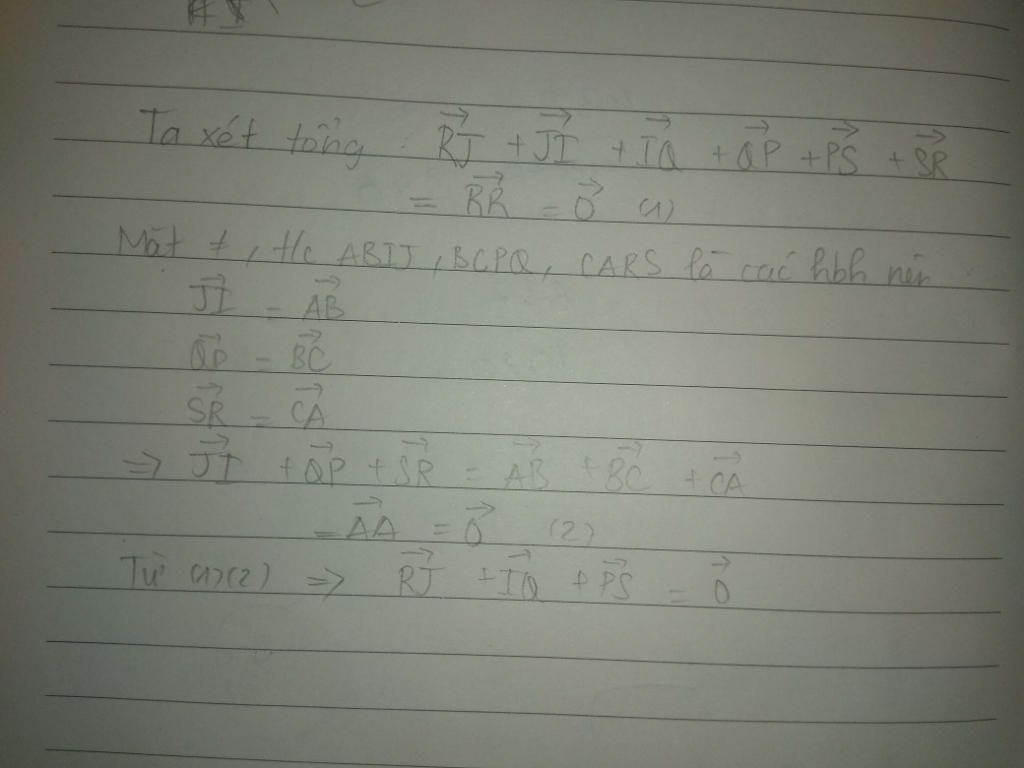 Ta xét tổng : \overrightarrow{RJ} + \overrightarrow{JI} + \overrightarrow{IQ} + \overrightarrow{QP} + \overrightarrow{PS} + \overrightarrow{SR}
= \overrightarrow{RR} = \overrightarrow{0} (1)
Mặt ≠, t/c ABIJ, BCPQ, CARS là các hbh nên
\overrightarrow{JI} = \overrightarrow{AB}
\overrightarrow{QP} = \overrightarrow{BC}
\overrightarrow{SR} = \overrightarrow{CA}
=> \overrightarrow{JI} + \overrightarrow{QP} + \overrightarrow{SR} = \overrightarrow{AB} + \overrightarrow{BC} + \overrightarrow{CA}
= \overrightarrow{AA} = \overrightarrow{0} (2)
Từ (1)(2) => \overrightarrow{RJ} + \overrightarrow{IQ} + \overrightarrow{PS} = \overrightarrow{0}